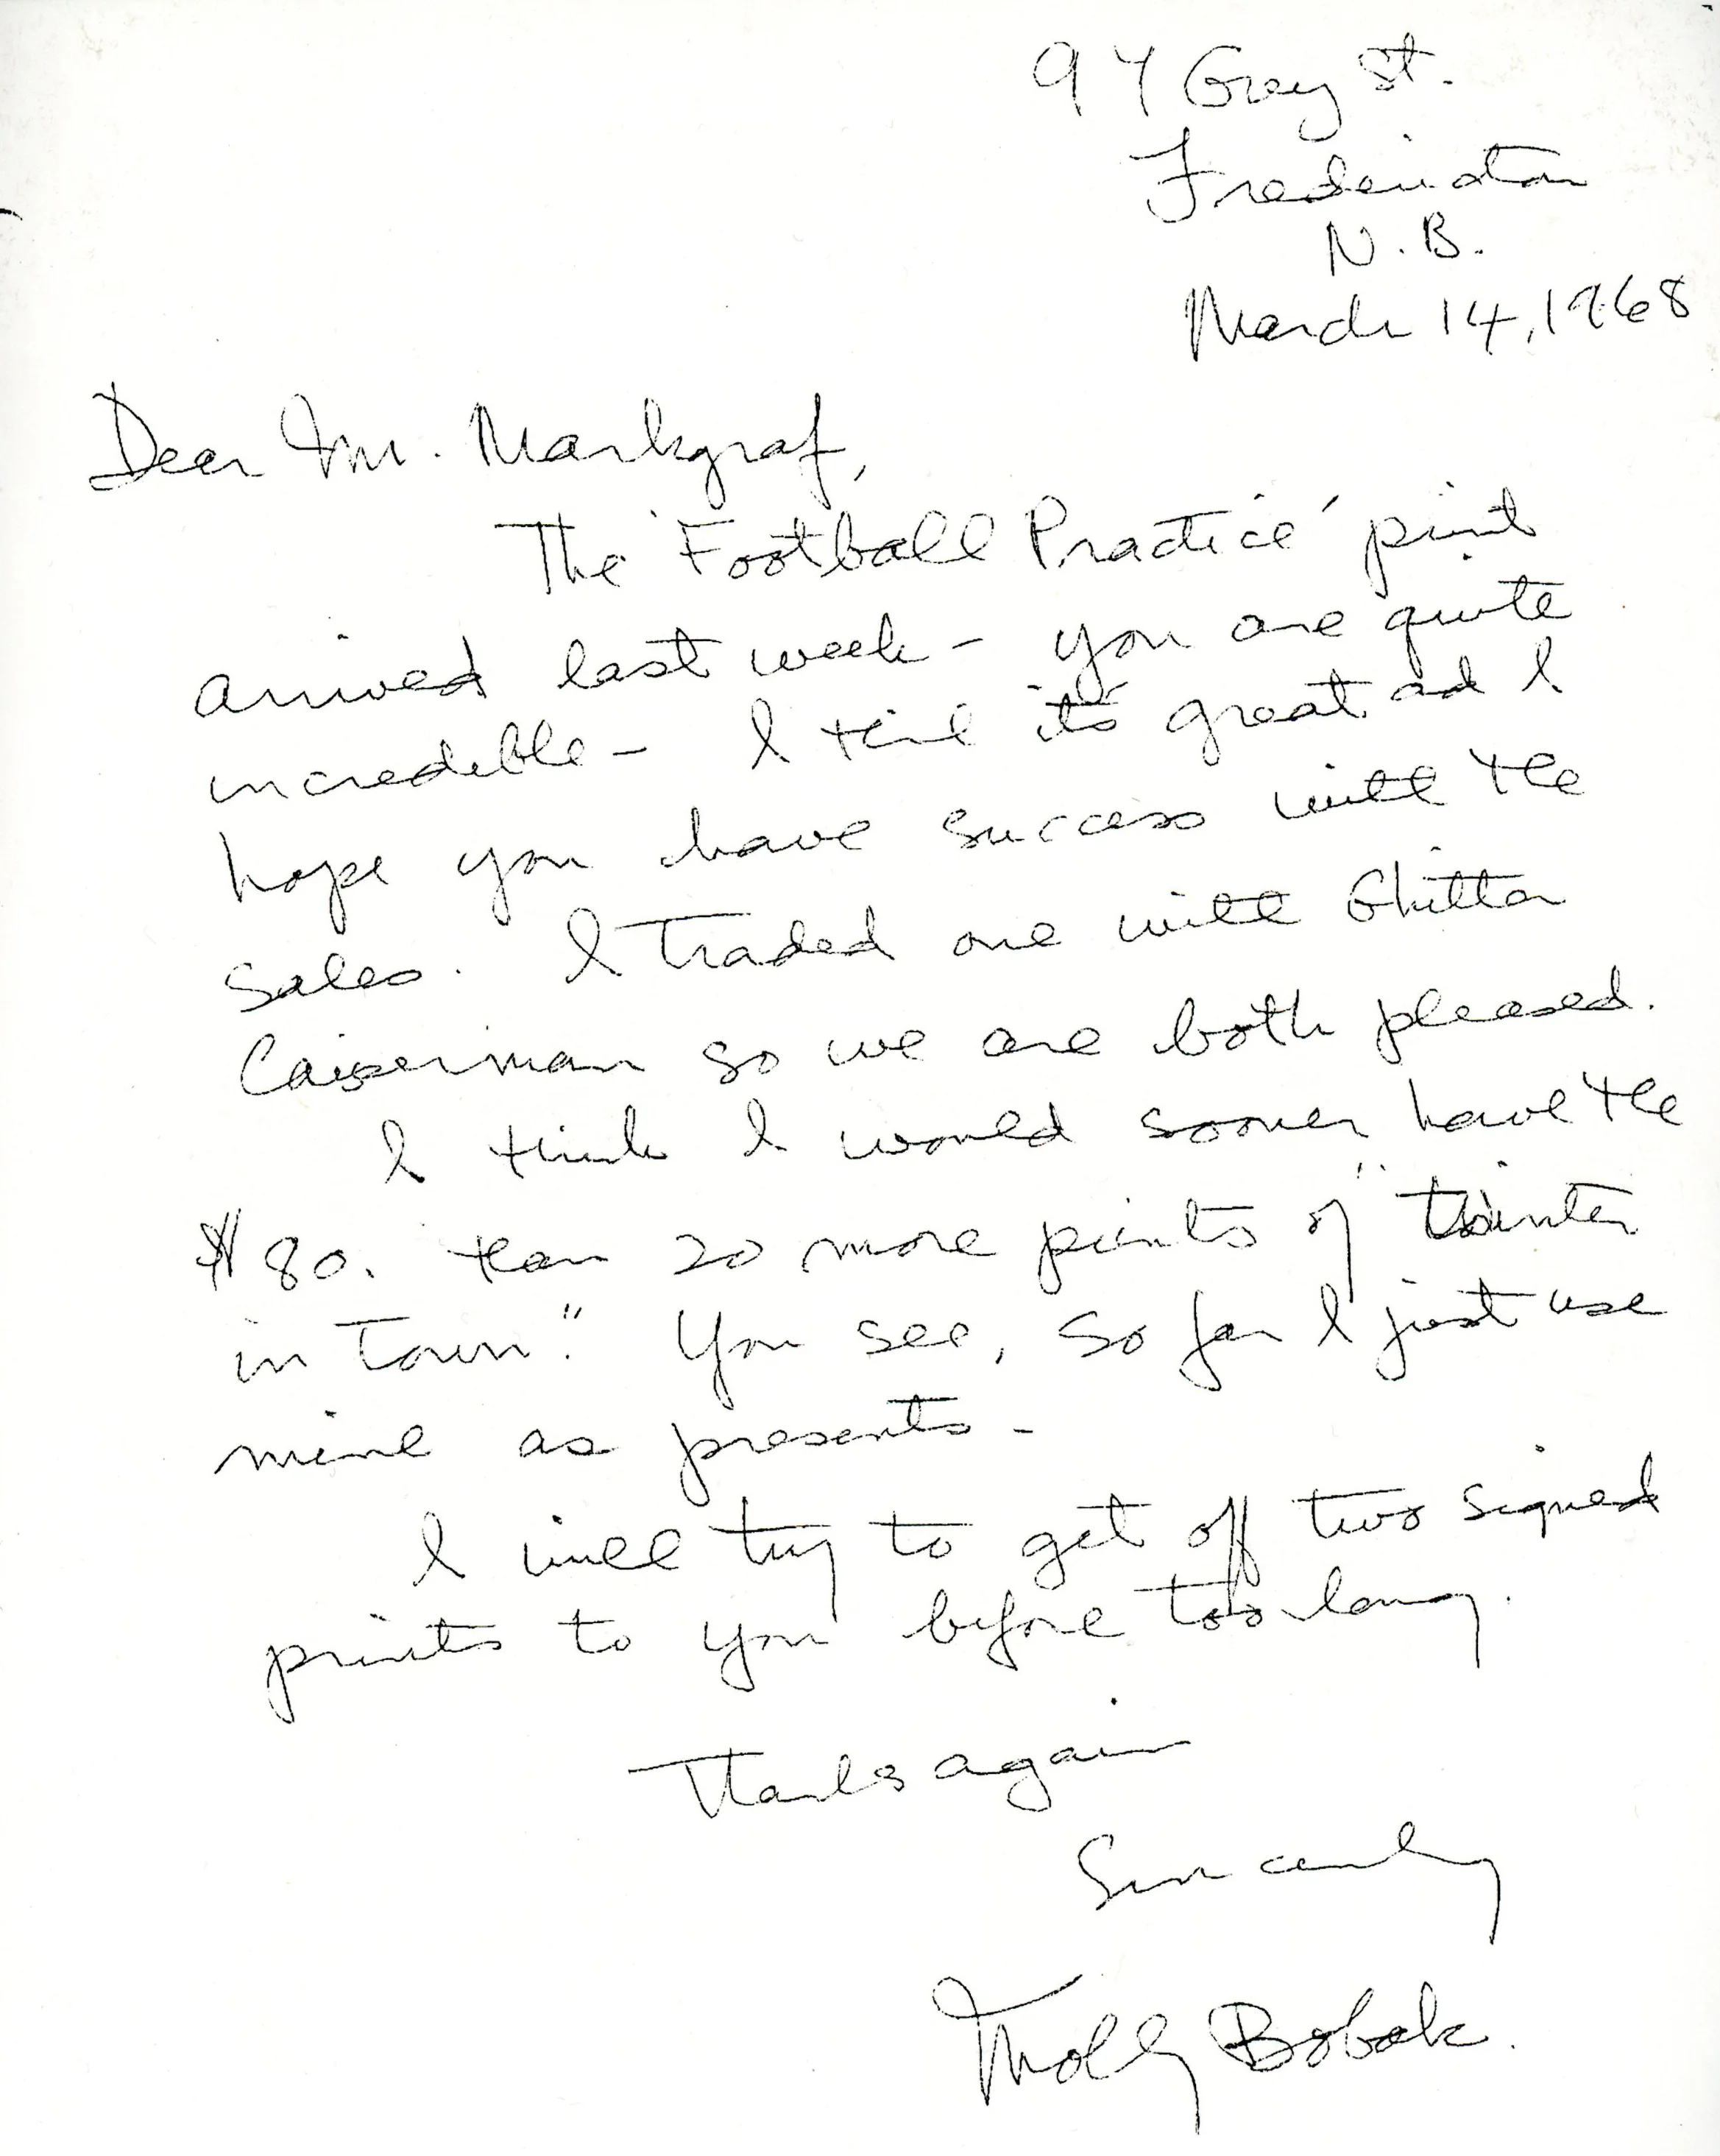 97 Grey St.
Fredericton
N.B.
March 14, 1968
Dear Mr. Markgraf,
The 'Football Practice' print
arrived last week - you are quite
incredible - I think it's great and I
hope you have success with the
sales. I traded one with Ghitta
Caiserman so we are both pleased.
I think I would sooner have the
$80. than 20 more prints of "Winter
in Town." You see, so far I just use
mine as presents -
I will try to get off two signed
prints to you before too long.
Thanks again
Sincerely
Molly Bobak.